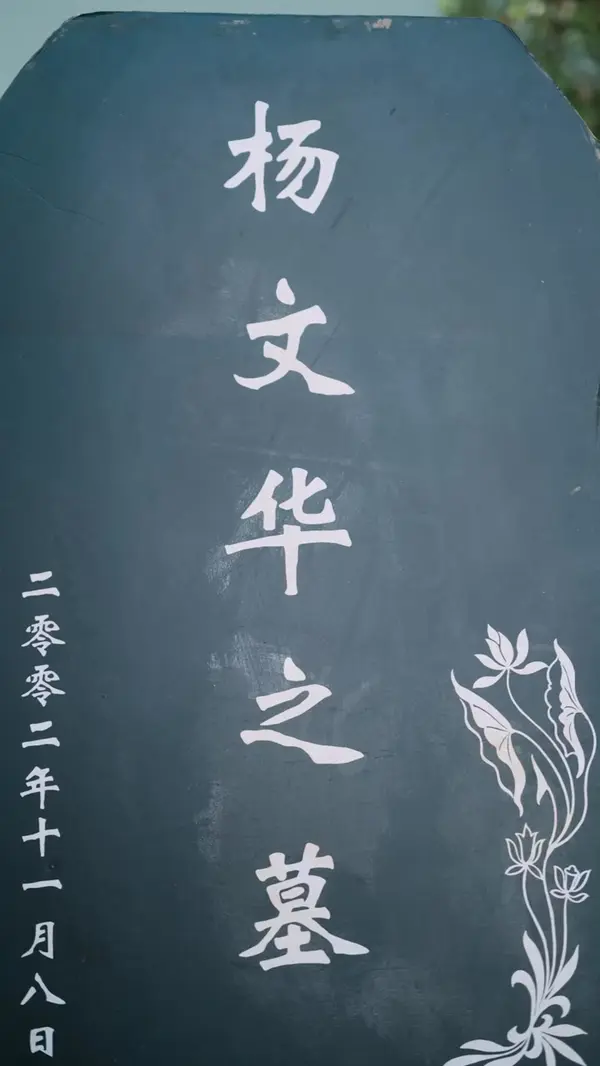 杨文华之墓
二零零二年十一月八日